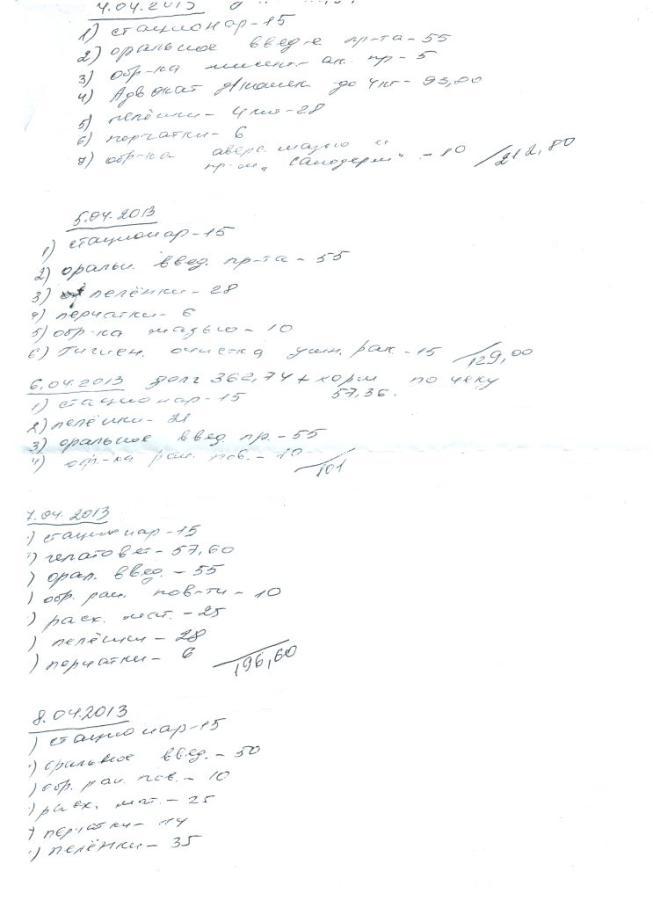 4.04.2013
1) стационар-15
2) оральное введ-е пр-та-55
3) обр-ка ак. пр-5
4) Адвокат д/кошек до 4кг-93,80
5) пелёнки-4шт-28
6) перчатки-6
7) обр-ка аверс. мазью и
пр-ом „Санодерм" -10 /212,80
5.04.2013
1) стационар-15
2) оральн. введ. пр-та-55
3) пелёнки-28
4) перчатки-6
5) обр-ка мазью-10
6) Гигиен. очистка ушн. рак.-15 /129,00
6.04.2013 долг 362,74 + корм по чеку
57,36.
1) стационар-15
2) пелёнки-21
3) оральное введ пр.-55
4) обр-ка ран. пов.-10 /101
7.04.2013
) стационар-15
) гепатовет-57,60
) орал. введ.-55
) обр. ран. пов-ти-10
) расх. мат.-25
) пелёнки-28
) перчатки-6 /196,60
8.04.2013
) стационар-15
) оральное введ.-50
) обр. ран. пов.-10
) расх. мат.-25
) перчатки-14
) пелёнки-35